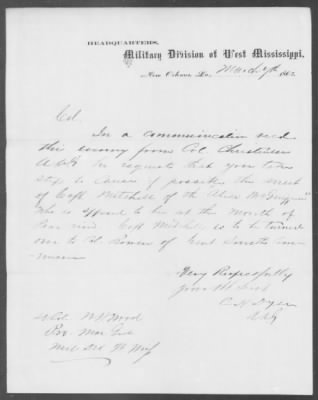 HEADQUARTERS,
Military Division of West Mississippi,
New Orleans La., March 7th 1865.
Col.
In a communication recd
this evening from Col. Christensen
AAG he requests that you take
steps to cause if possible the arrest
of Capt Mitchell of the
who is supposed to be at the mouth of
river Capt Mitchell is to be turned
over to Col Robinson of Genl
Very Respectfully
Your Obt Servt
C. H. Dyer
AAG
Lt Col. W Wood
Pro. Mar. Genl
Mil Div W Miss